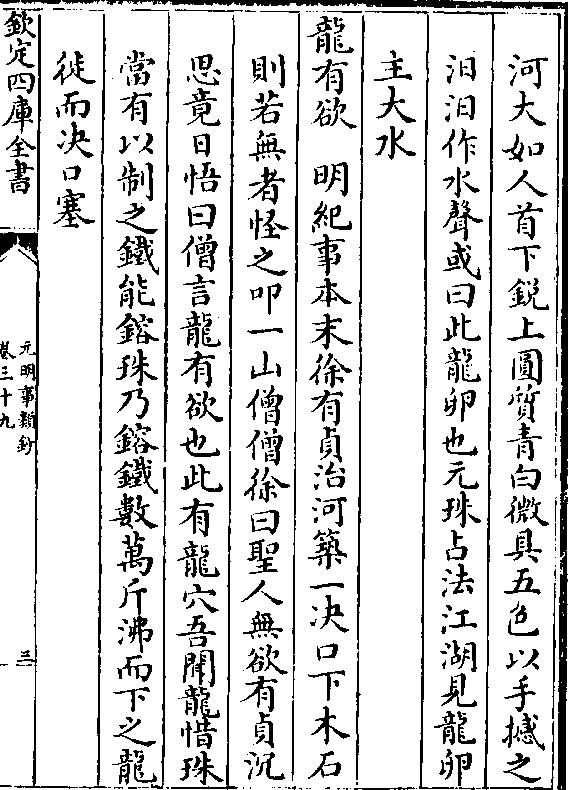 河大如人首下銳上圓質青白微具五色以手撼之
汩汩作水聲或曰此龍卵也元珠占法江湖見龍卵
主大水
龍有欲　明紀事本末徐有貞治河築一决口下木石
則若無者怪之叩一山僧僧徐曰聖人無欲有貞沉
思竟日悟曰僧言龍有欲也此有龍穴吾聞龍惜珠
當有以制之鐵能鎔珠乃鎔鐵數萬斤沸而下之龍
徙而决口塞
欽定四庫全書
元明事類鈔
卷三十九
三